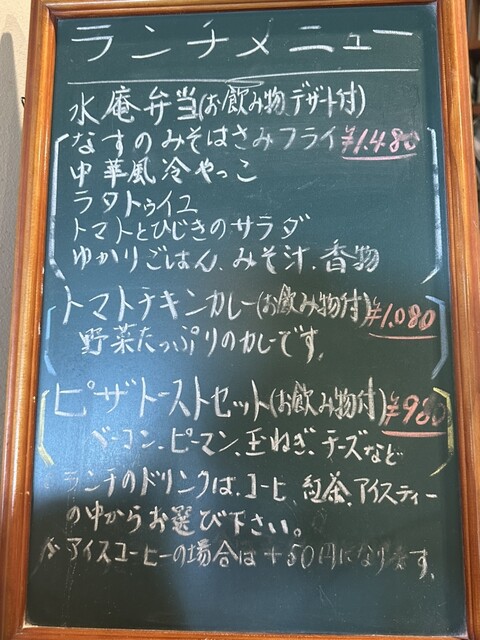 ランチメニュー
水庵弁当(お飲み物デザート付)
なすのみそはさみフライ ¥1.480
中華風冷やっこ
ラタトゥイユ
トマトとひじきのサラダ
ゆかりごはん、みそ汁、香物
トマトチキンカレー(お飲み物付) ¥1.080
野菜たっぷりのカレーです。
ピザトーストセット(お飲み物付) ¥980
ベーコン、ピーマン、玉ねぎ、チーズなど
ランチのドリンクは、コーヒ、紅茶、アイスティー
の中からお選び下さい。
☆アイスコーヒーの場合は+50円になります。